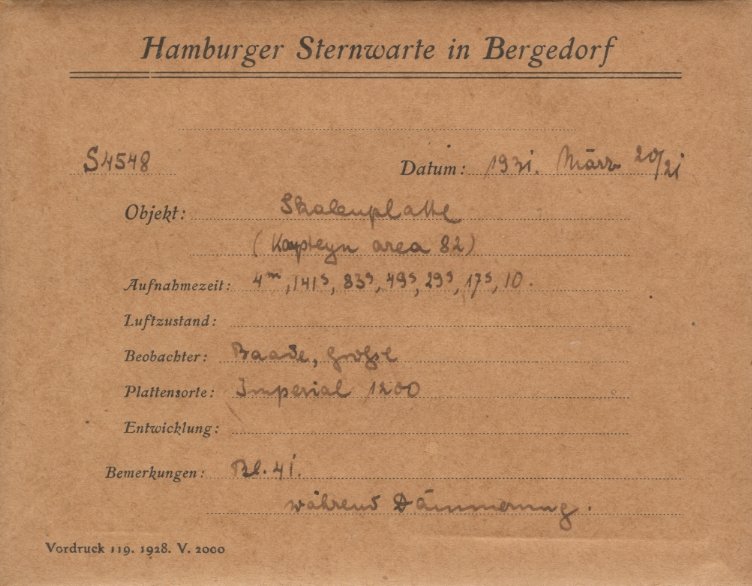 Hamburger Sternwarte in Bergedorf
S4548
Datum: 1931. März 20/21
Objekt: Skalenplatte
(Kapteyn area 82)
Aufnahmezeit: 4m, 141s, 83s, 49s, 29s, 17s, 10.
Luftzustand:
Beobachter: Baade, Große
Plattensorte: Imperial 1200
Entwicklung:
Bemerkungen: Bl. 41.
während Dämmerung.
Vordruck 119. 1928. V. 2000